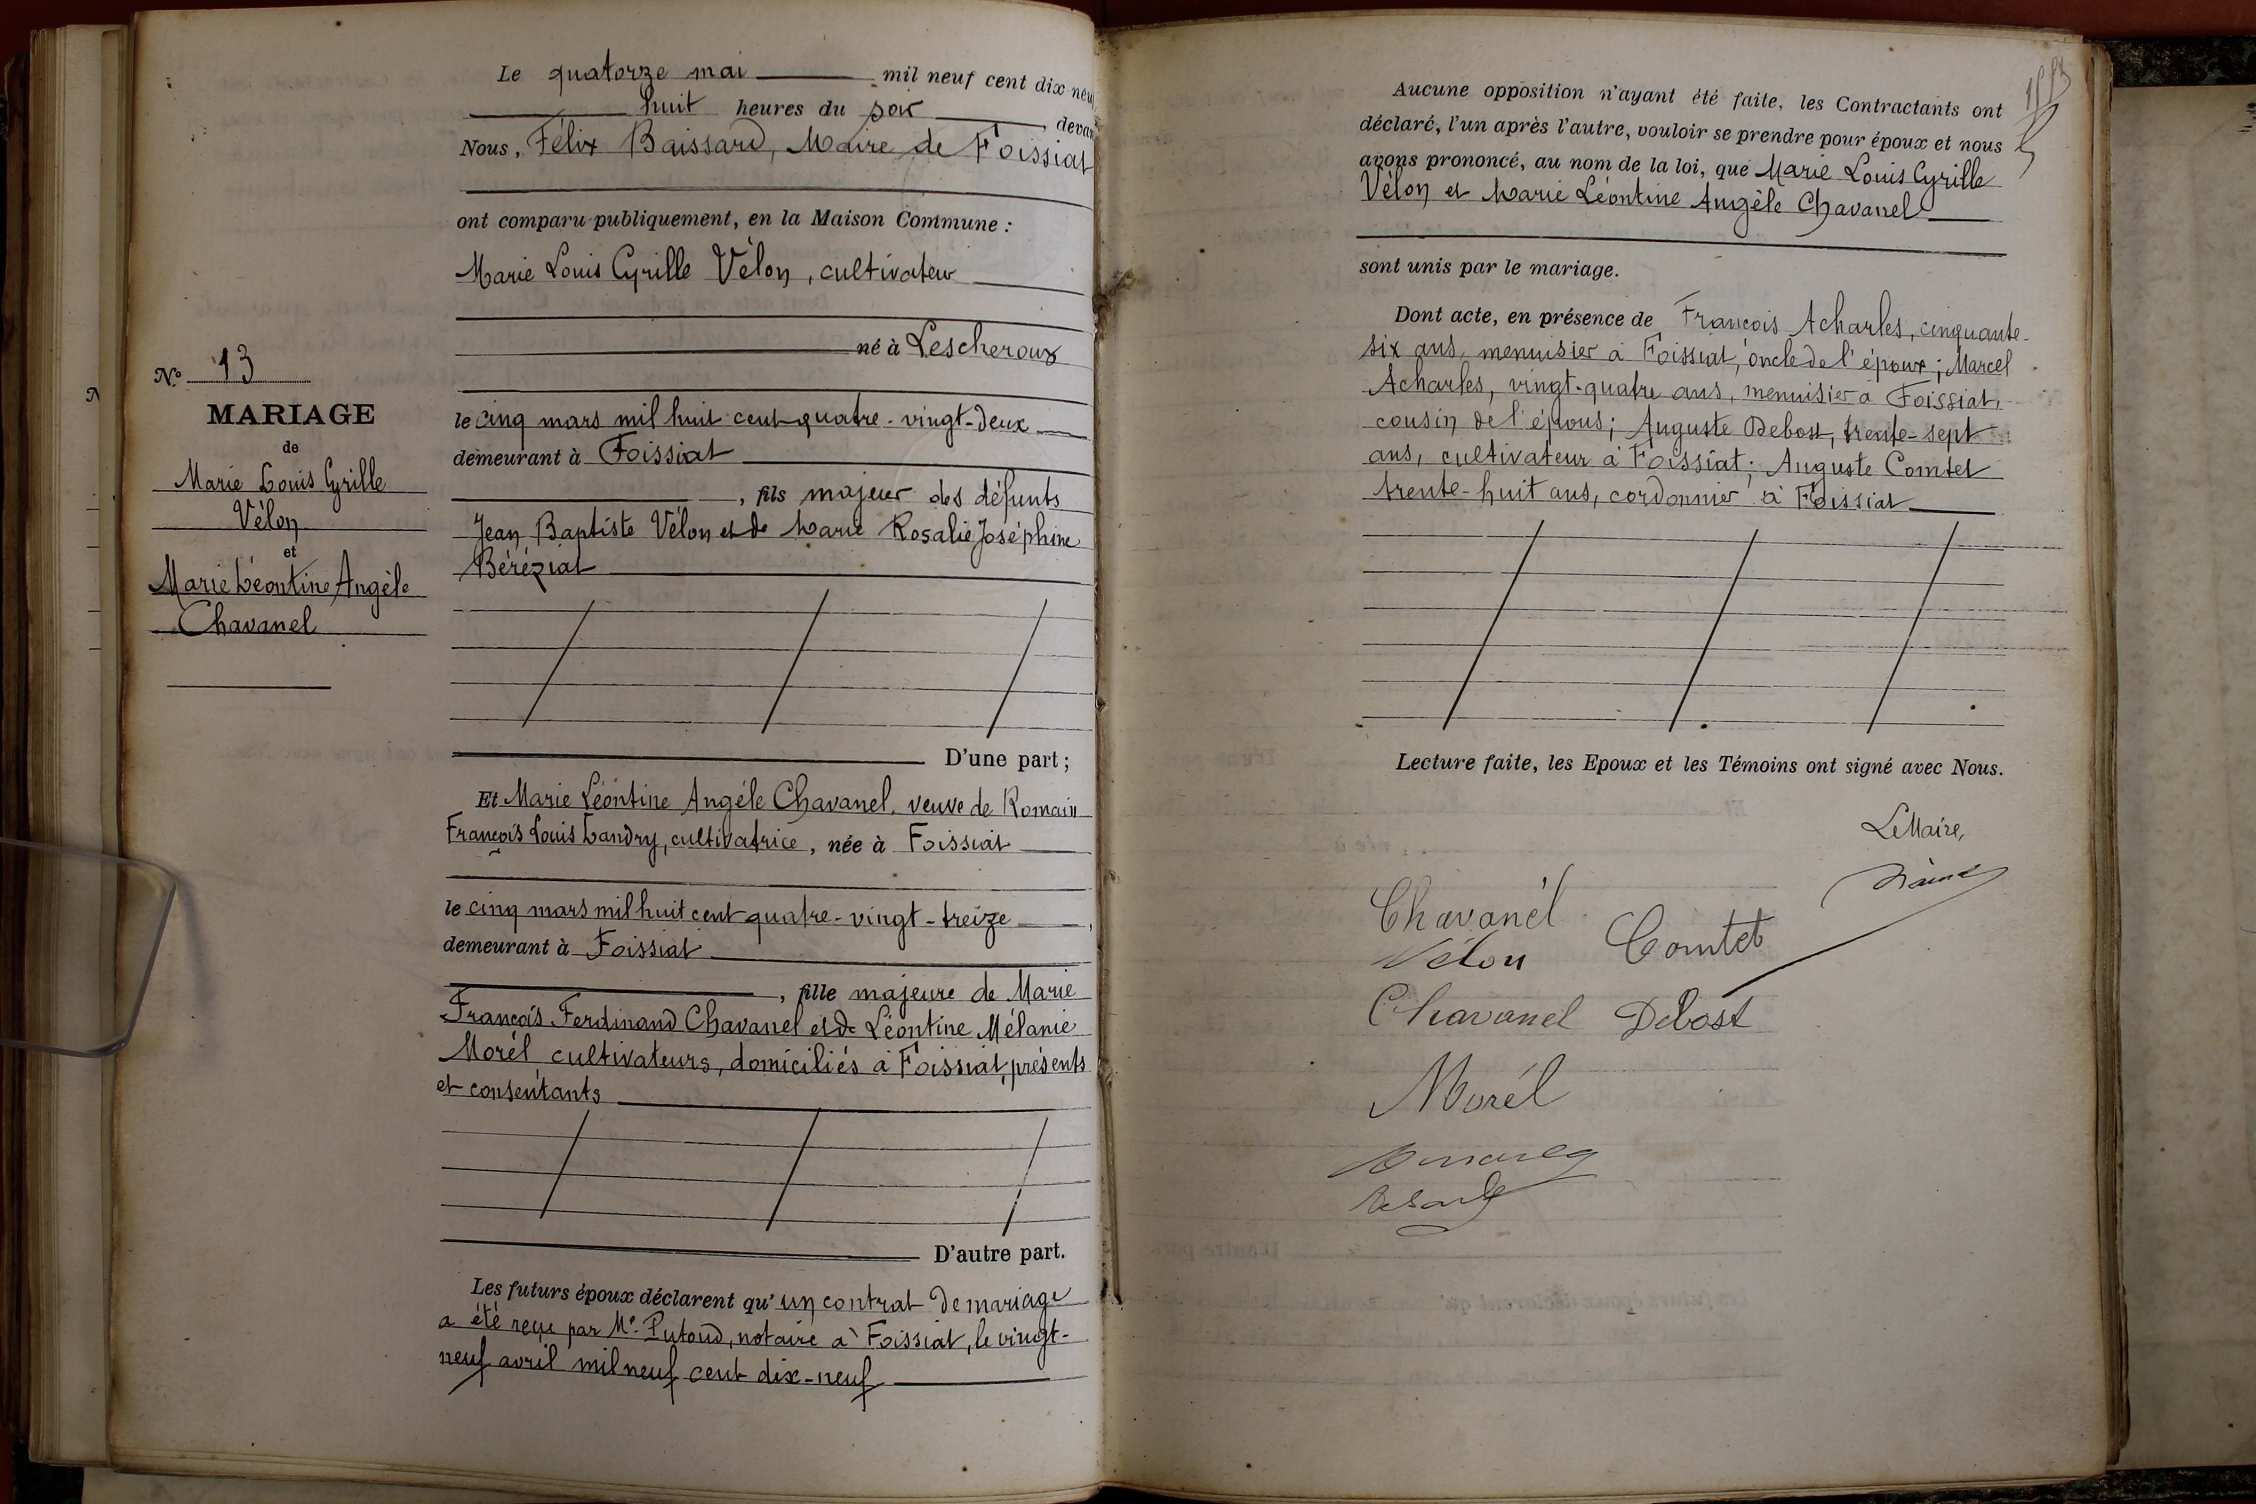 Le quatorze mai mil neuf cent dix-neuf
huit heures du soir, devan
Nous, Félix Baissard, Maire de Foissiat
ont comparu publiquement, en la Maison Commune :
Marie Louis Cyrille Vélon, cultivateur
né à Lescheroux
N° 13
MARIAGE
de
Marie Louis Cyrille
Vélon
et
Marie Léontine Angèle
Chavanel
le cinq mars mil huit cent quatre-vingt-deux
demeurant à Foissiat
, fils majeur des défunts
Jean Baptiste Vélon et de Marie Rosalie Joséphine
Béréziat
D'une part ;
Et Marie Léontine Angèle Chavanel, veuve de Romain
François Louis Landry, cultivatrice, née à Foissiat
le cinq mars mil huit cent quatre-vingt-treize,
demeurant à Foissiat
, fille majeure de Marie
François Ferdinand Chavanel et de Léontine Mélanie
Morél cultivateurs, domiciliés à Foissiat, présents
et consentants
D'autre part.
Les futurs époux déclarent qu'un contrat de mariage
a été reçu par Me. Putoud, notaire à Foissiat, le vingt-
neuf avril mil neuf cent dix-neuf
Aucune opposition n'ayant été faite, les Contractants ont
déclaré, l'un après l'autre, vouloir se prendre pour époux et nous
avons prononcé, au nom de la loi, que Marie Louis Cyrille
Vélon et Marie Léontine Angèle Chavanel
sont unis par le mariage.
Dont acte, en présence de François Acharles, cinquante-
six ans, menuisier à Foissiat, oncle de l'époux ; Marcel
Acharles, vingt-quatre ans, menuisier à Foissiat,
cousin de l'épous ; Auguste Debost, trente-sept
ans, cultivateur à Foissiat ; Auguste Comtet
trente-huit ans, cordonnier à Foissiat
Lecture faite, les Epoux et les Témoins ont signé avec Nous.
Le Maire,
Chavanél
Vélon Comtet
Chavanel Debost
Morél